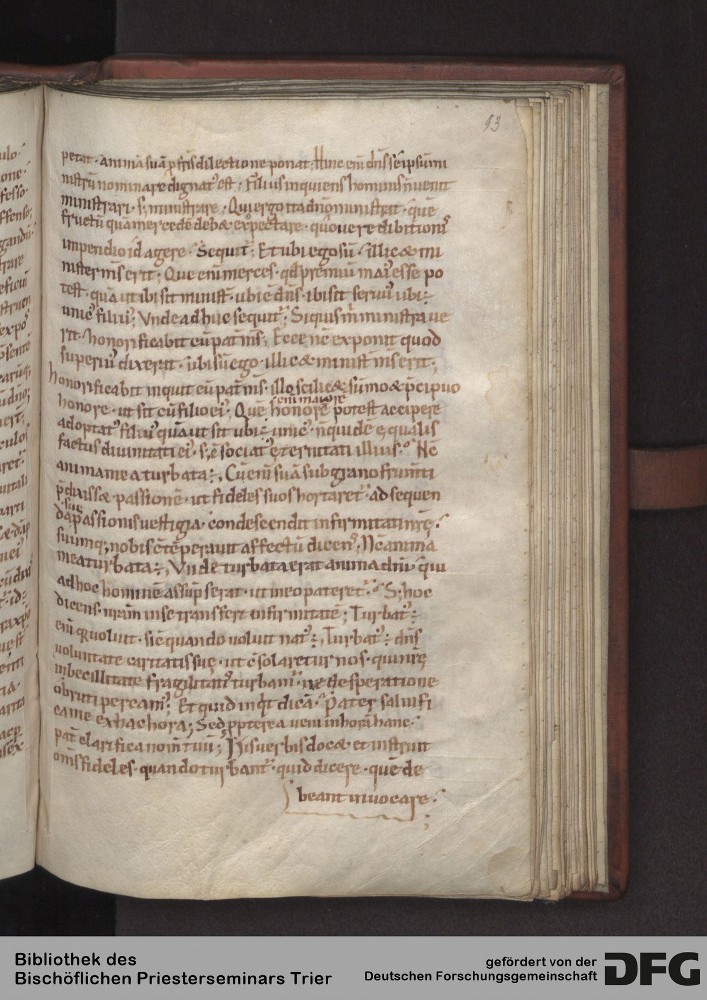 93
petat · animā suā p̄ fr̄is dilectione ponat; Hinc eni dn̄s se ipsum
ministrū nominare dignat' est; Filius inquiens hominis n̄ uenit
ministrari · s; ministrare; Qui ergo ita dn̄o ministrat · quē
fructū quā mercedē debet expectare · quo uere dibitionis
impendio id agere · Sequit'; Et ubi ego sū · illic et mi
nister m̄s erit; Que eni merces · qd premiū maius esse po
test · quā ut ibi sit minist' · ubi ē dn̄s · ibi sit seruus ubi
unic' filius; Vnde adhuc sequit'; Siquis m̄ ministraue
rit · honorificabit eū pat' m̄s; Ecce nē exponit quod
superius dixerat · ubi sū ego · illic et minist' m̄s erit;
honorificabit inquit eū pat' m̄s · illo scilicet sūmo et p̄cipuo
honore · ut sit cū filio ei'; Quē eni maiorē honorē potest accipere
adoptat' filius quā ut sit ubi ÷ unic' · n̄ quidē equalis
factus diuinitati ei' · s; c̄sociat' eternitati illius · Nc̄
anima mea turbata ÷; Cū eni suā sub grano frum̄ti
p̄dixisset passionē · ut fideles suos hortaret' · ad sequen
da passionis sue uestigia · condescendit infirmitati nr̄e ·
suumq; nobis c̄tēperauit affectū dicens · Nc̄ anima
mea turbata ÷; Vnde turbata erat anima dn̄i · qui
adhoc hominē assūpserat · ut in eo pateret'; S; hoc
dicens · nr̄am in se transfert infirmitatē; Turbat' ÷
eni q̄ uoluit · sic quando uoluit nat' ÷; Turbat' ÷ dn̄s
uoluntate caritatis sue · ut c̄solaretur nos · qui nr̄e
inbecillitate fragilitatis turbam' · ne desperatione
obruti peream'; Et quid inq̄t dicā · Pater saluifi
ca me ex hac hora; Sed ppterea ueni in horā hanc ·
pat' clarifica nom̄ tuū; His uerbis docet · et instruit
om̄s fideles · quando turbant' · quid dicere · quē de
beant inuocare ·
Bibliothek des
Bischöflichen Priesterseminars Trier
gefördert von der
Deutschen Forschungsgemeinschaft
DFG